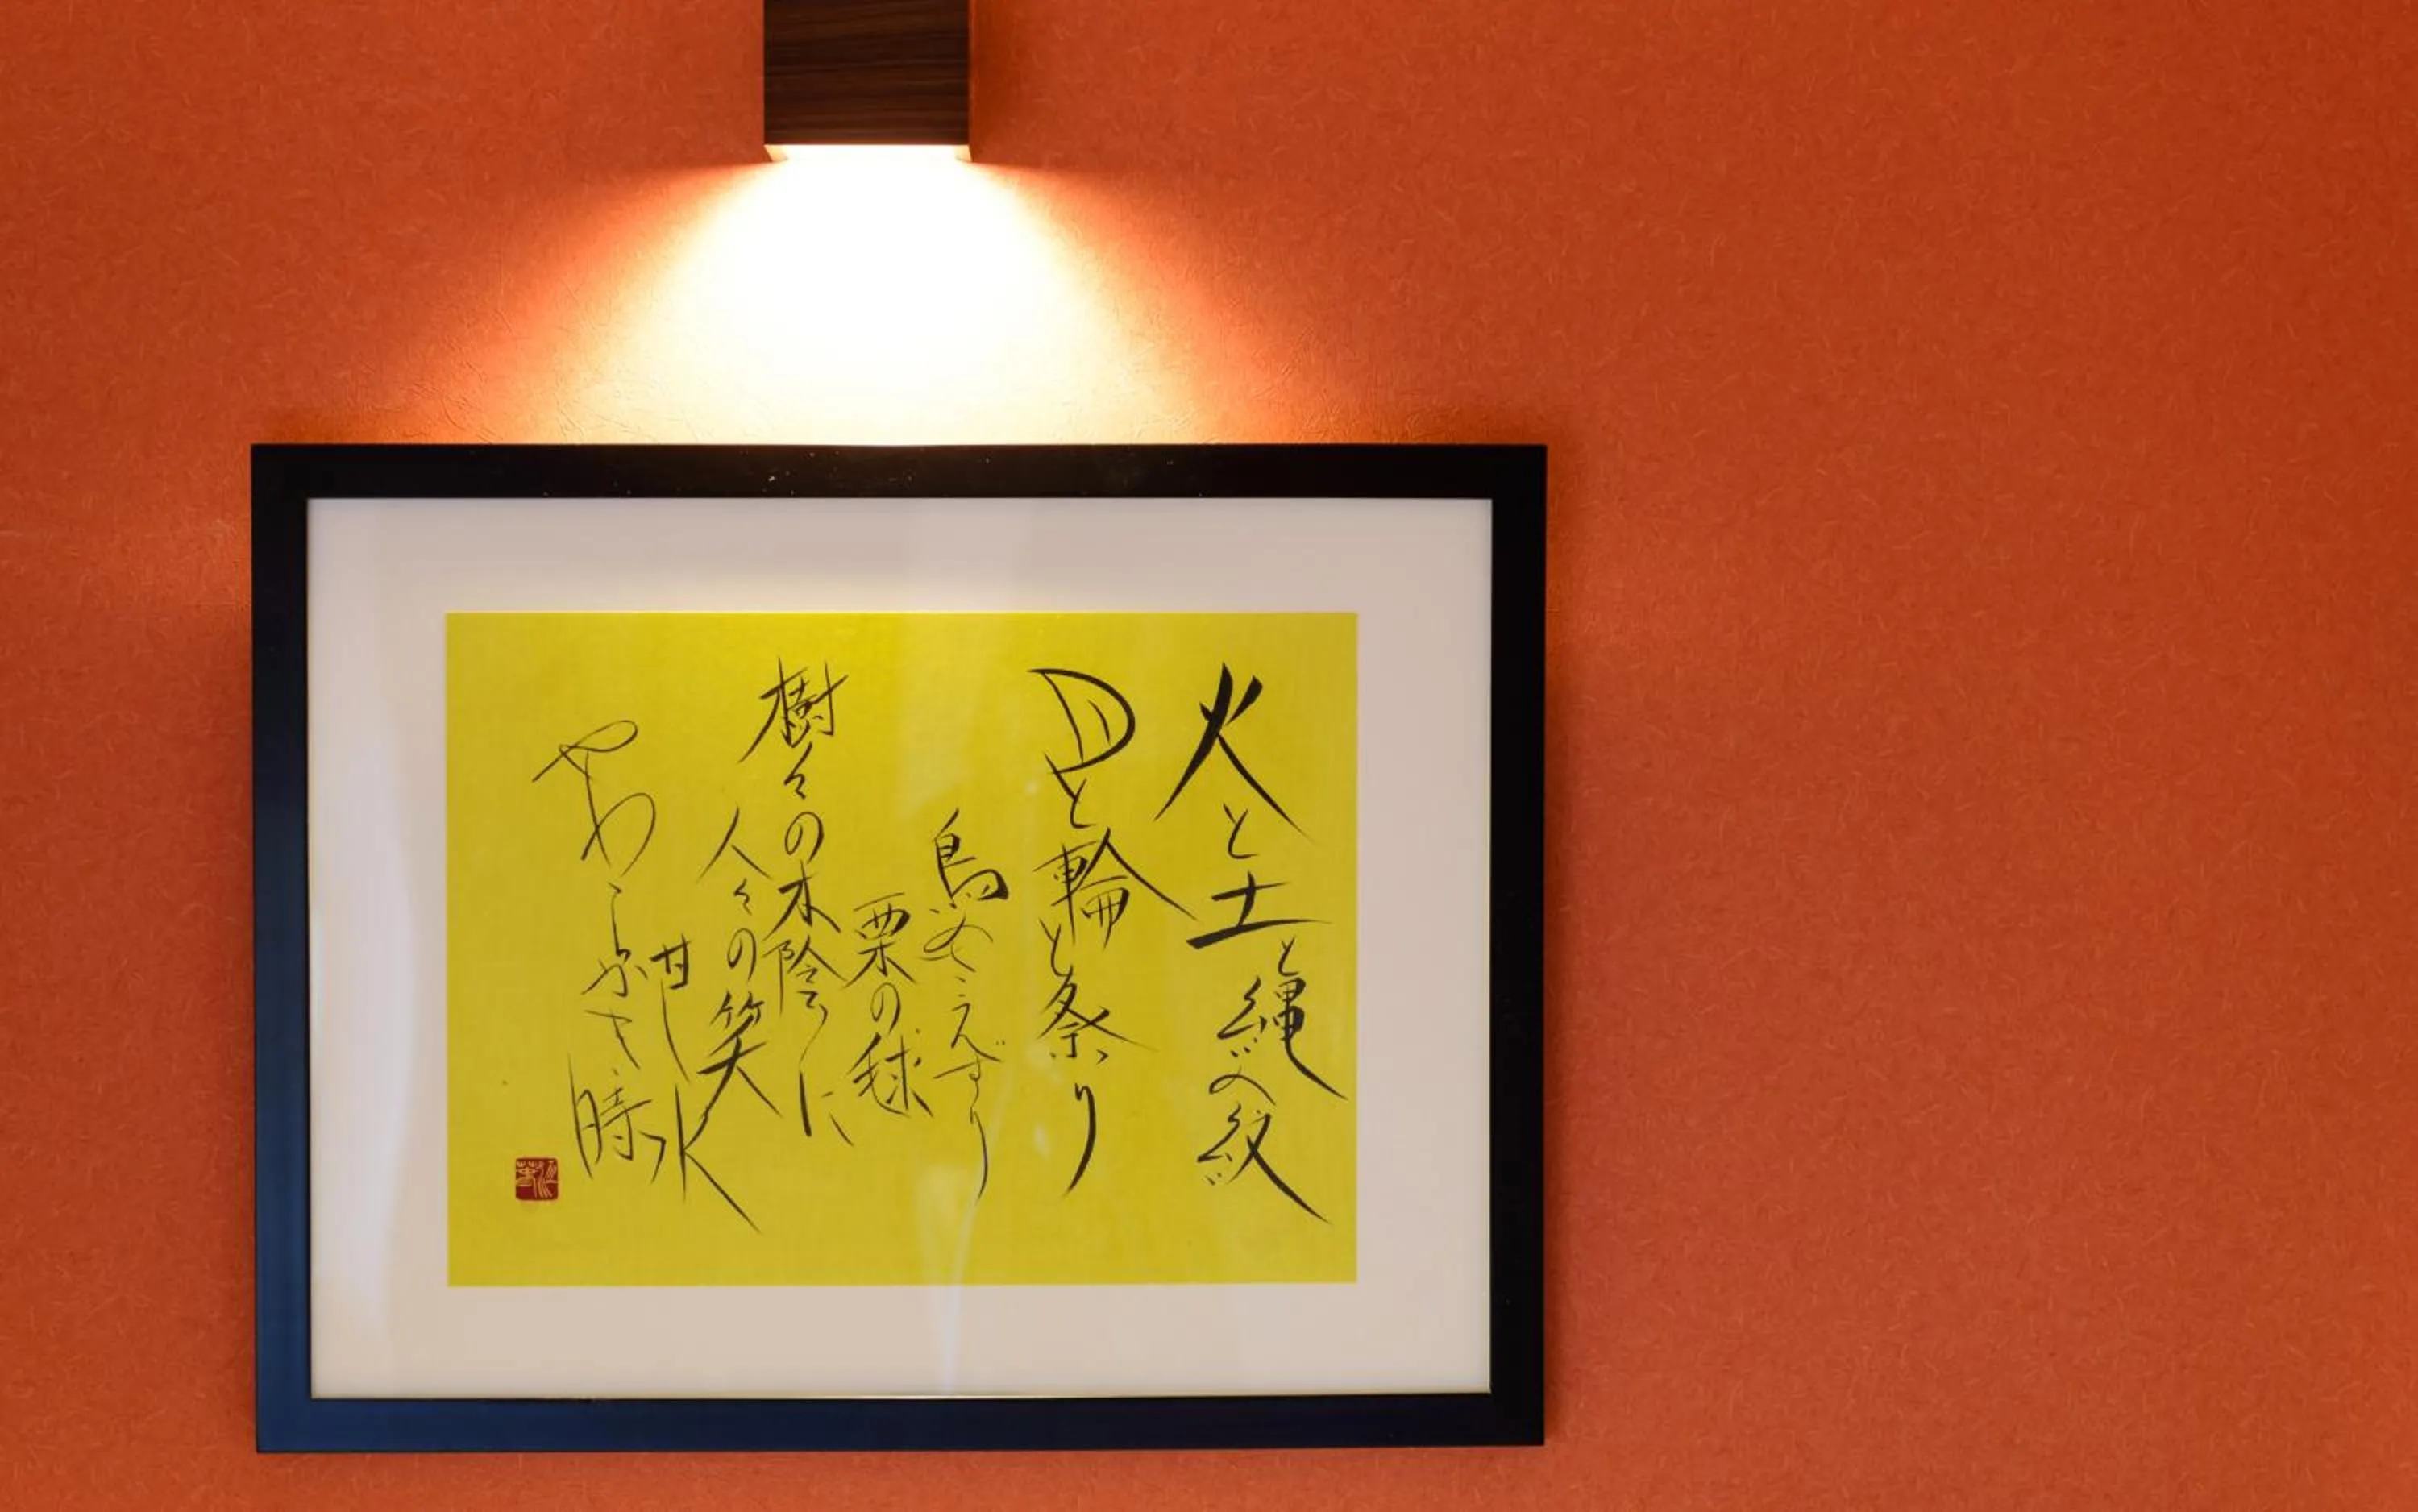 火と土と縄の紋
月と輪と祭り
鳥のさえずり
栗の毬
樹々の木陰に
人々の笑
甘し水
やわらかき時